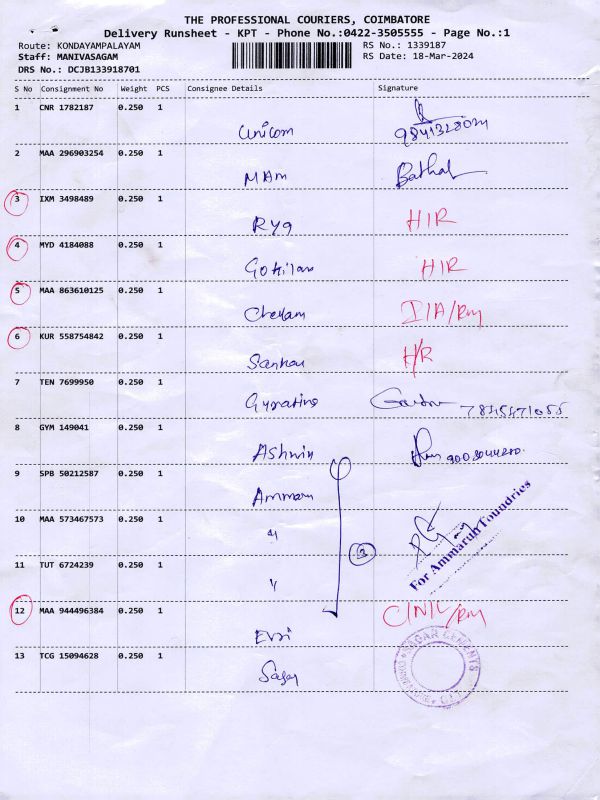 THE PROFESSIONAL COURIERS, COIMBATORE
Delivery Runsheet - KPT - Phone No.:0422-3505555 - Page No.:1
Route: KONDAYAMPALAYAM RS No.: 1339187
Staff: MANIVASAGAM RS Date: 18-Mar-2024
DRS No.: DCJB133918701
S No Consignment No Weight PCS Consignee Details Signature
1 CNR 1782187 0.250 1
Unicom
2 MAA 296903254 0.250 1
MAm
3 IXM 3498489 0.250 1
H/R
4 MYD 4184088 0.250 1
Gokilan H/R
5 MAA 863610125 0.250 1
Chellam I/A/Rm
6 KUR 558754842 0.250 1
H/R
7 TEN 7699950 0.250 1
8 GYM 149041 0.250 1
Ashwin
9 SPB 50212587 0.250 1
Ammam
10 MAA 573467573 0.250 1
"
For Ammarun Foundries
11 TUT 6724239 0.250 1
"
12 MAA 944496384 0.250 1
C/N/L/RM
13 TCG 15094628 0.250 1
Sagar
SAGAR CEMENTS